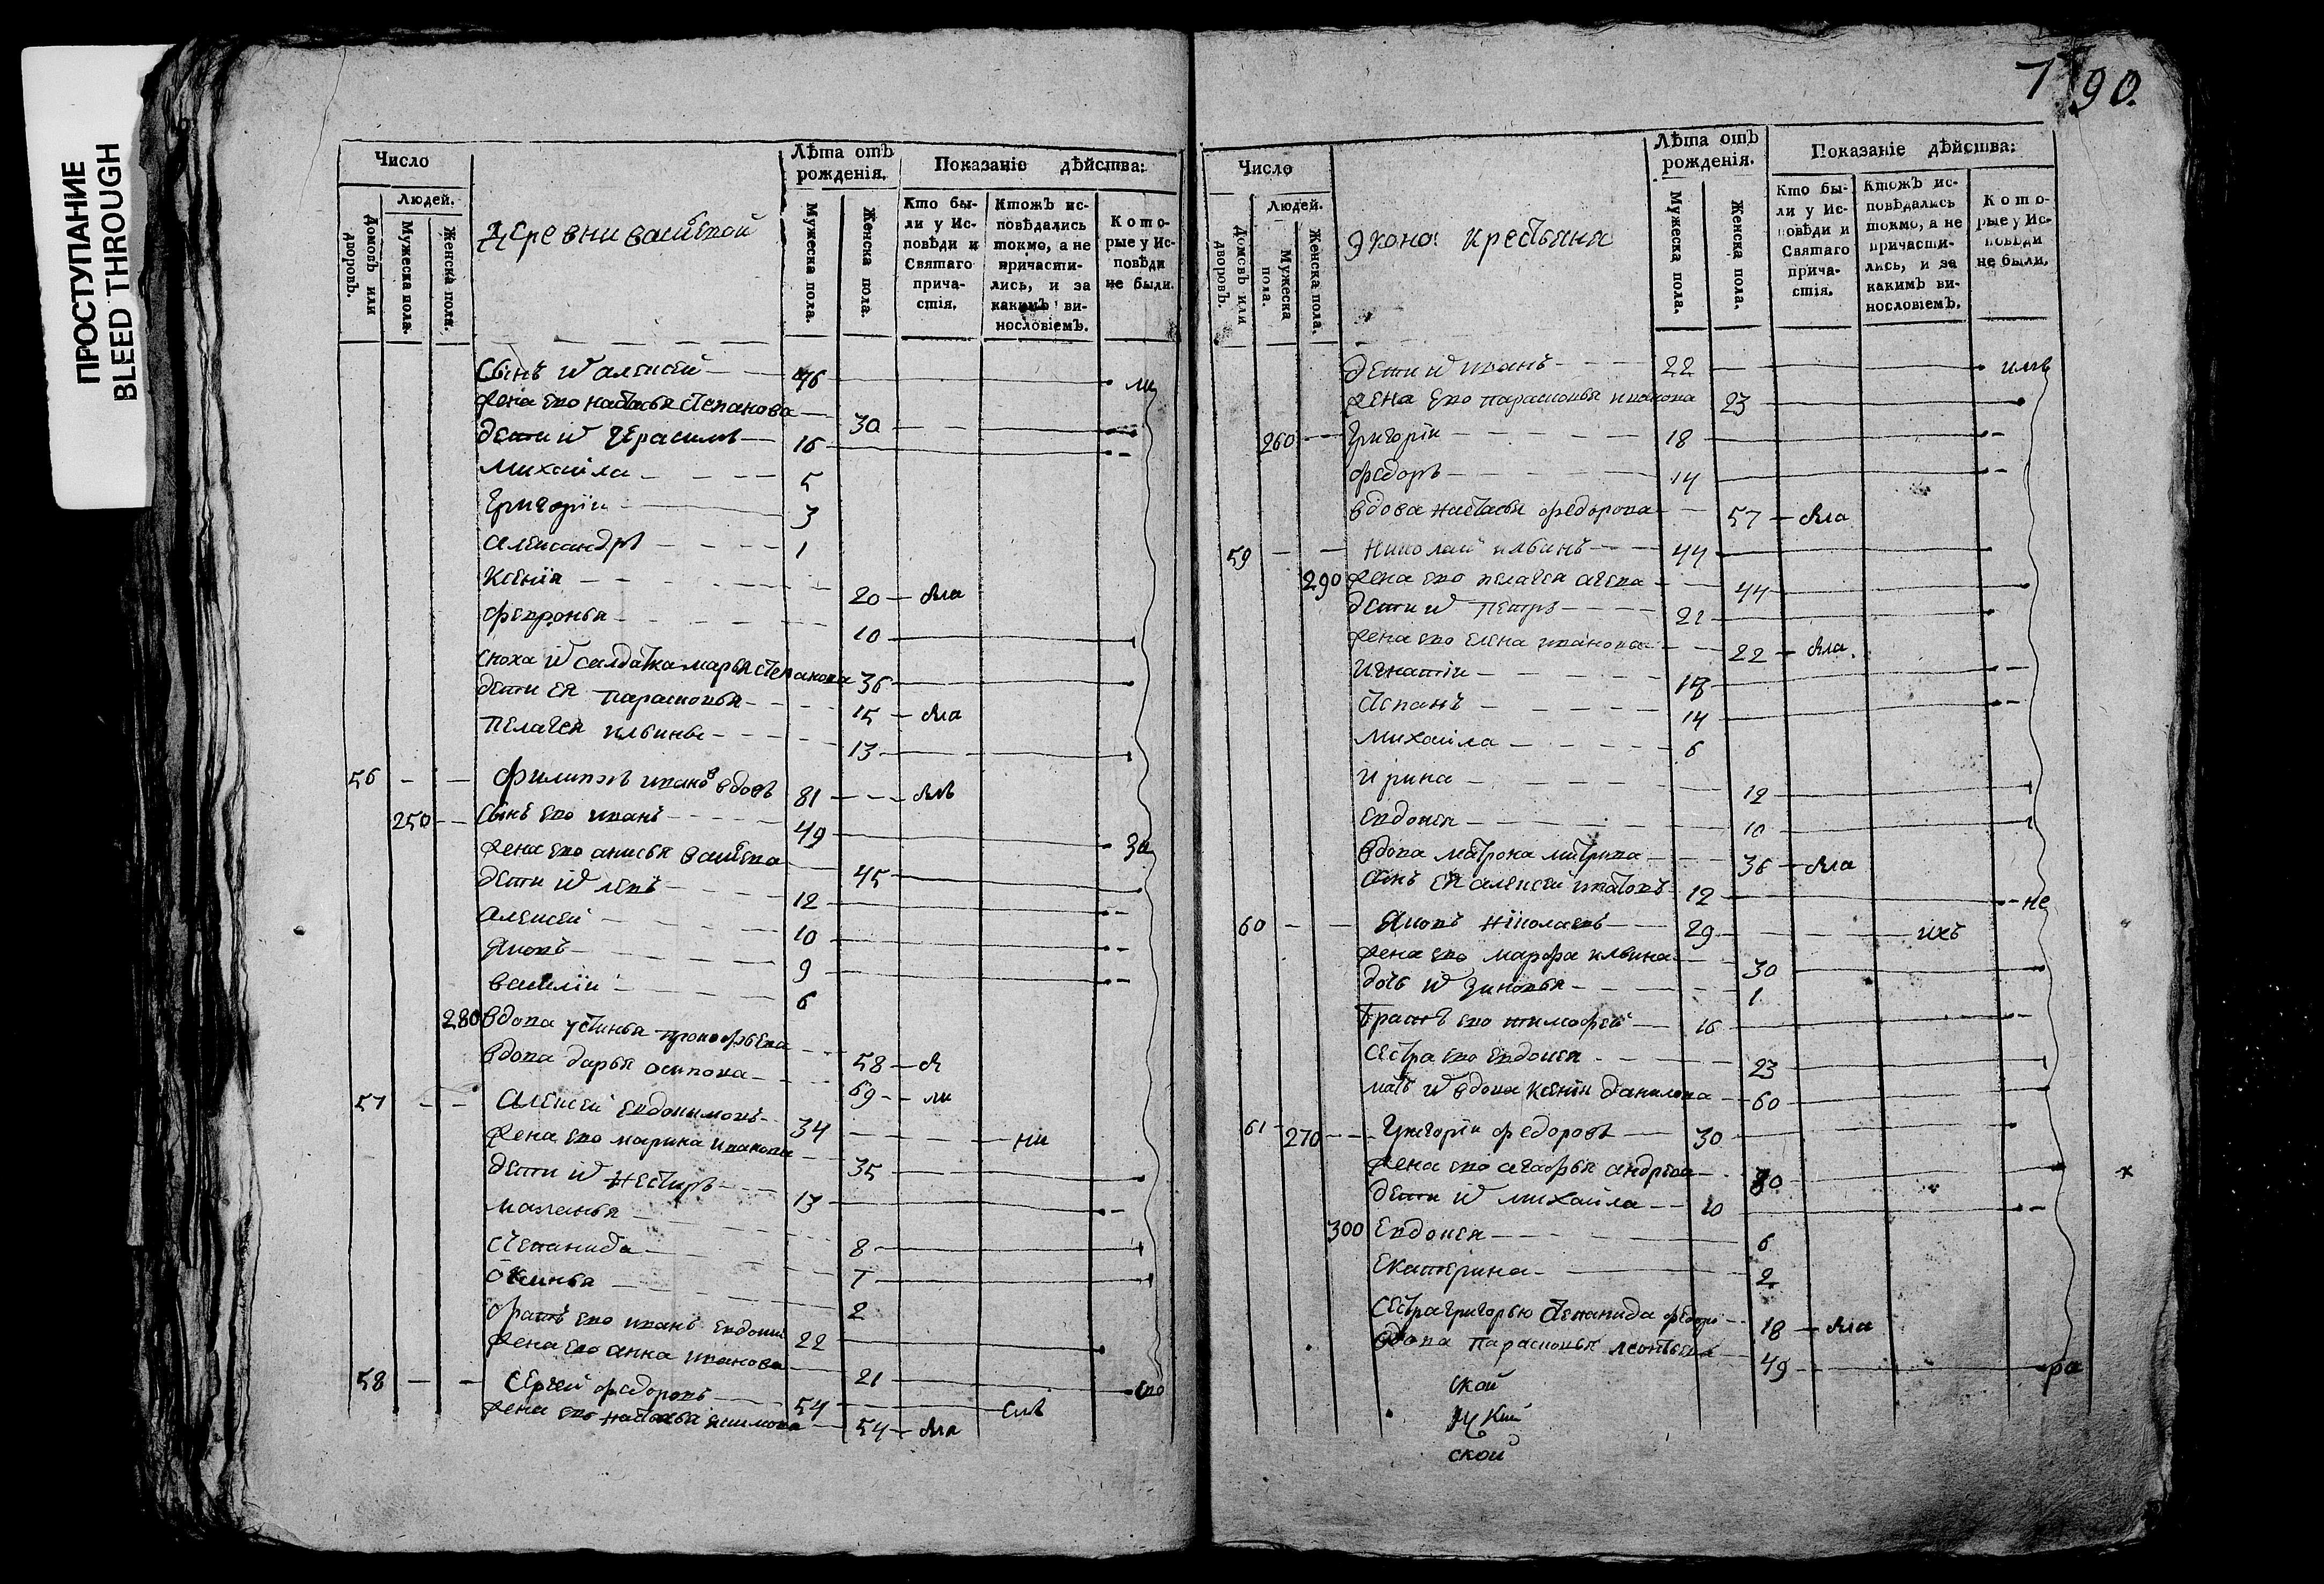 ПРОСТУПАНИЕ
BLEED THROUGH
7 90.
Число
Людей.
Домовъ или дворовъ.
Мужеска пола.
Женска пола.
Лѣта отъ рожденія.
Мужеска пола.
Женска пола.
Показаніе дѣйства:
Кто были у Исповѣди и Святаго причастія.
Ктожъ исповѣдались токмо, а не причастились, и за какимъ винословіемъ.
Которые у Исповѣди не были.
Деревни
сынъ ѿ алексей 46 ли
жена ево настасья степанова 30
дети ѿ герасимъ 16
михайла 5
григорїи 3
александръ 1
ксенїя 20 яла
февронья 10
сноха ѿ салдатка марья степанова 36
дети ея парасковья 15 яла
пелагея ильины 13
56 филипъ иванъ вдовъ 81 ялъ
250 сынъ ево иванъ 49 за
жена ево анисья васілева 45
дети ѿ левъ 12
алексей 10
яковъ 9
василїи 6
280 вдова устинья прокофьева 58 я
вдова дарья осипова 69 ли
57 алексей евдокимовъ 34 ни
жена ево марина иванова 35
дети ѿ нестиръ 13
маланья 8
степанида 7
окинья 2
братъ ево иванъ евдоки 22
жена ево анна иванова 21
58 сергей федоровъ 54 ево
жена ево настасья 54 яла
Число
Людей.
Домовъ или дворовъ.
Мужеска пола.
Женска пола.
Лѣта отъ рожденія.
Мужеска пола.
Женска пола.
Показаніе дѣйства:
Кто были у Исповѣди и Святаго причастія.
Ктожъ исповѣдались токмо, а не причастились, и за какимъ винословіемъ.
Которые у Исповѣди не были.
Эконо: крестьяня
дети ѿ иванъ 22
жена ево парасковья иванова 23
260 григорїи 18
федоръ 14
вдова настасья федорова 57 яла
59 николай ильинъ 44
290 жена ево пелагея агева 44
дети ѿ петръ 21
жена ево елена иванова 22 яла.
игнатїи 18
степанъ 14
михайла 6
ирина 12
евдокея 10
вдова матрона митрева 36 яла
сынъ ея алексей 12 не
60 яковъ нїколаевъ 29 ихъ
жена ево марфа ильина 30
дочь ѿ зиновья 1
братъ ево тимофей 16
сестра ево евдокея 23
мать ѿ вдова ксенїя данилова 60
61 270 григорїи федоровъ 30
жена ево агафья андреева 30
дети ѿ михайла 10
300 евдокея 6
екатерина 2
сестра григорью степанида федоро 18 яла
вдова парасковья леонтьева 49 ра
ской
ской